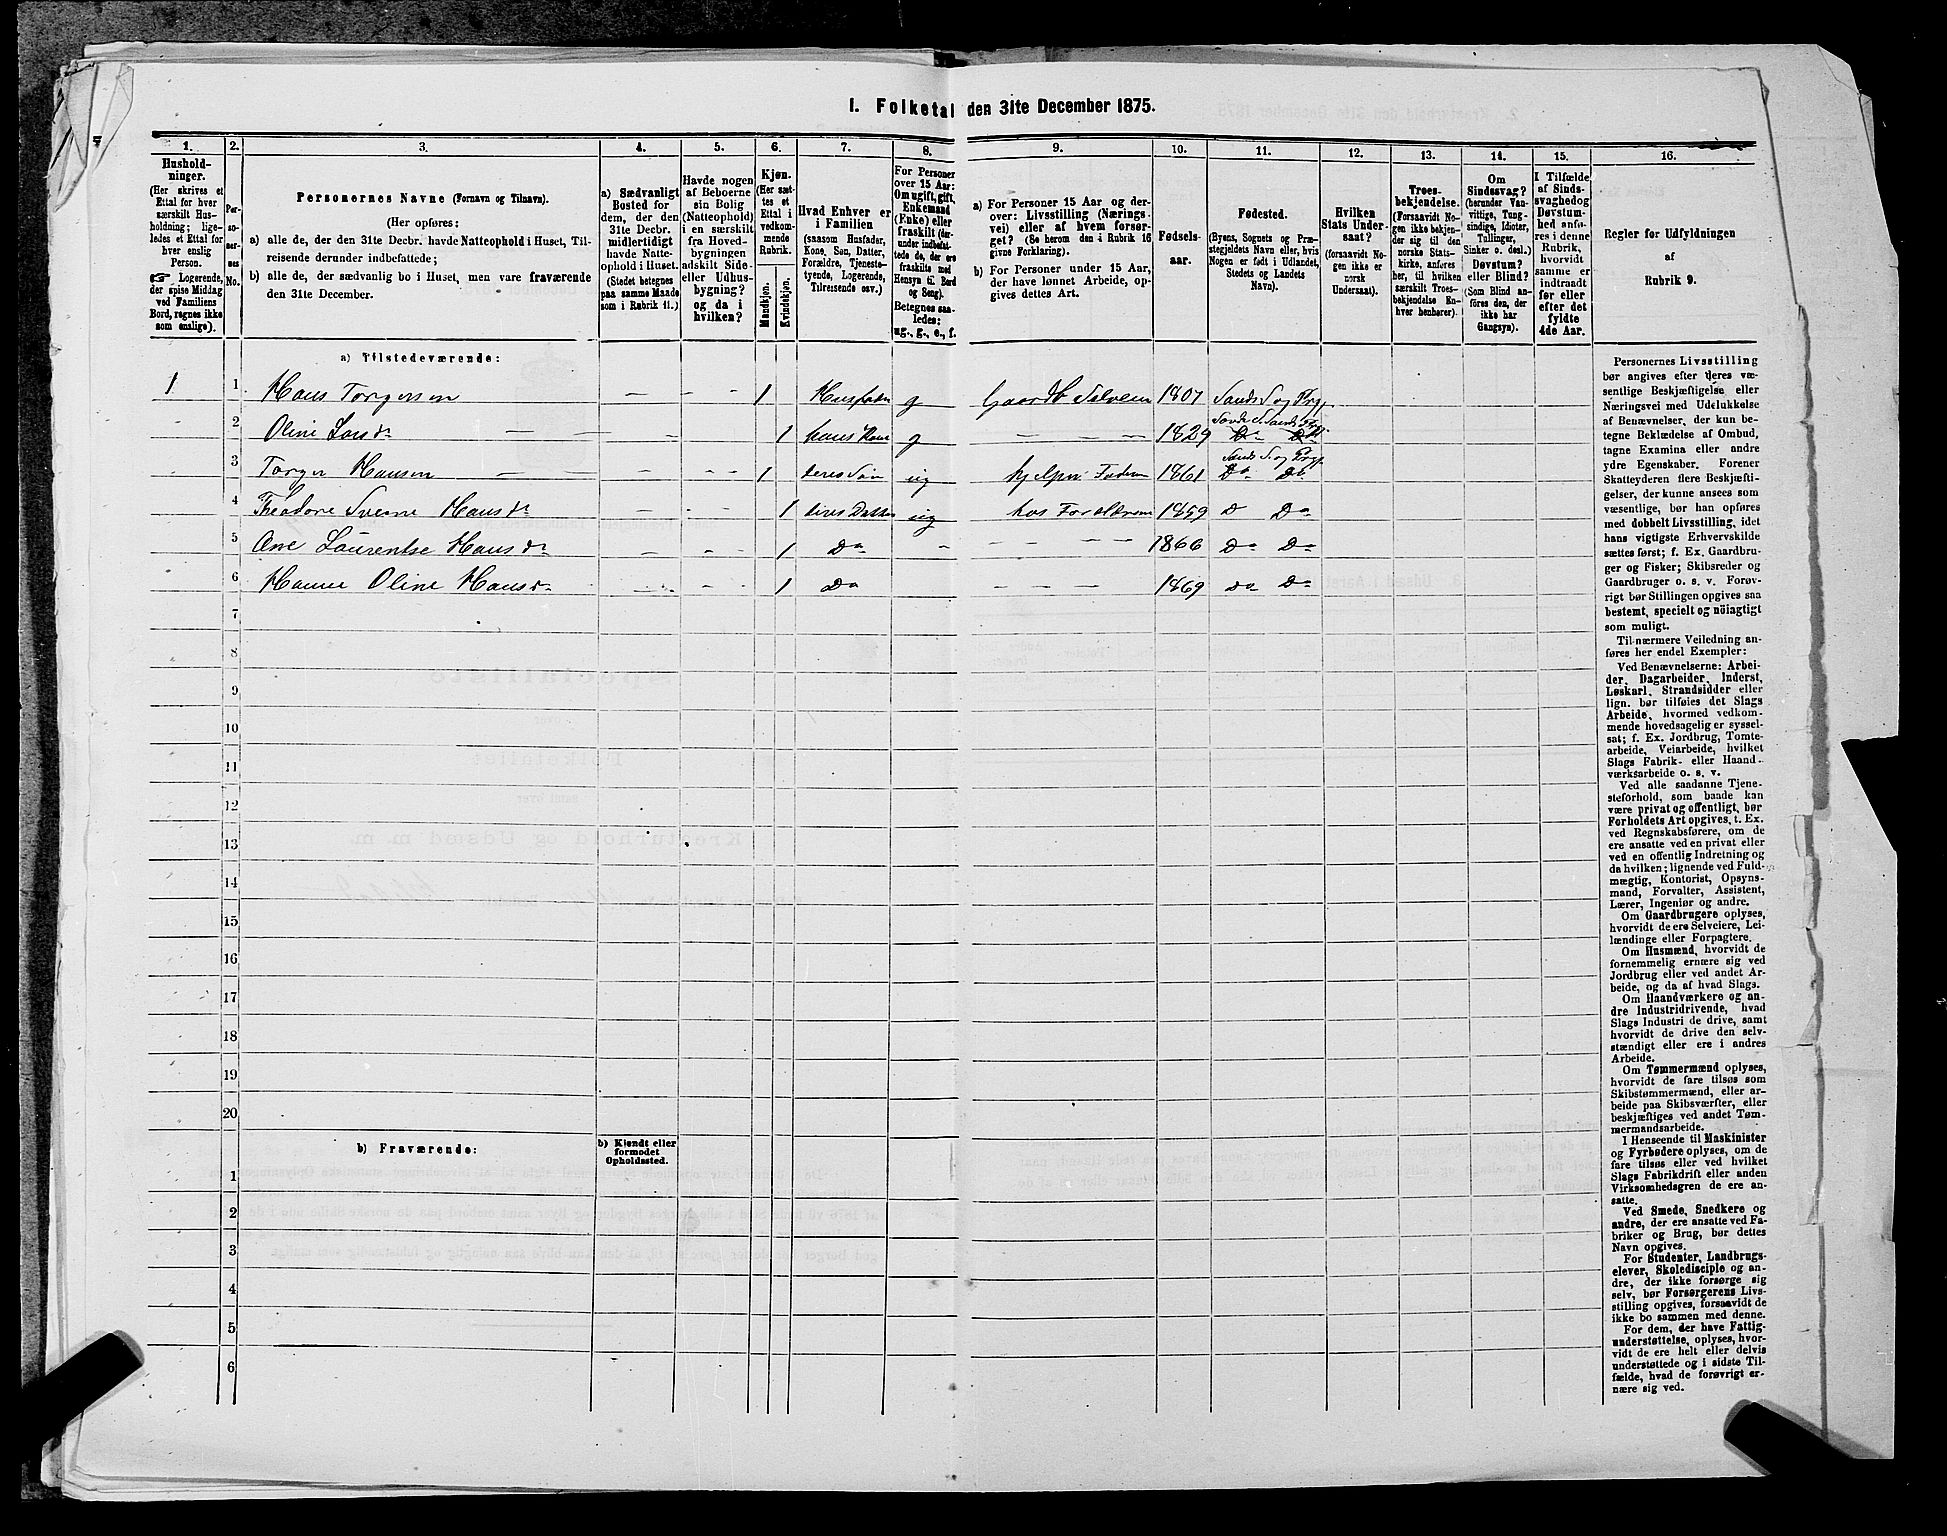 1. Folketal den 31te December 1875.
1. 2. 3. 4. 5. 6. 7. 8. 9. 10. 11. 12. 13. 14. 15. 16.
Hushold-
ninger.
(Her skrives et
Ettal for hver
særskilt Hus-
holdning; lige-
ledes et Ettal for
hver enslig
Person.
☞ Logerende,
der spise Middag
ved Familiens
Bord, regnes ikke
som enslige).
Per-
soner-
nes
No.
Personernes Navne (Fornavn og Tilnavn).
(Her opføres:
a) alle de, der den 31te Decbr. havde Natteophold i Huset, Til-
reisende derunder indbefattede;
b) alle de, der sædvanlig bo i Huset, men vare fraværende
den 31te December.
a) Sædvanligt
Bosted for
dem, der den
31te Decbr.
midlertidigt
havde Natte-
ophold i Huset.
(Stedet betegnes
paa samme Maade
som i Rubrik 11.)
Havde nogen
af Beboerne
sin Bolig
(Natteophold)
i en særskilt
fra Hoved-
bygningen
adskilt Side-
eller Udhus-
bygning?
og da i
hvilken?
Kjøn.
(Her sæt-
tes et
Ettal i
vedkom-
mende
Rubrik.
Mandkjøn.
Kvindekjøn.
Hvad Enhver er
i Familien
(saasom Husfader,
Kone, Søn, Datter,
Forældre, Tjeneste-
tyende, Logerende,
Tilreisende osv.)
For Personer
over 15 Aar:
Om ugift, gift,
Enkemand
(Enke) eller
fraskilt (der-
under indbefat-
tede de, der ere
fraskilte med
Hensyn til Bord
og Seng).
Betegnes saa-
ledes:
ug., g., e., f.
a) For Personer 15 Aar og der-
over: Livsstilling (Nærings-
vei) eller af hvem forsør-
get? (Se herom den i Rubrik 16
givne Forklaring).
b) For Personer under 15 Aar,
der have lønnet Arbeide, op-
gives dettes Art.
Fødsels-
aar.
Fødested.
(Byens, Sognets og Præ-
stegjeldets Navn eller, hvis
Nogen er født i Udlandet,
Stedets og Landets
Navn).
Hvilken
Stats Under-
saat?
(forsaavidt No-
gen ikke er
norsk
Undersaat).
Troes-
bekjendelse.
(Forsaavidt No-
gen ikke bekjen-
der sig til den
norske Stats-
kirke, anføres
her, til hvilken
særskilt Troes-
bekjendelse En-
hver henhører).
Om
Sindssvag?
(herunder Van-
vittige, Tung-
sindige, Idioter,
Tullinger,
Sinker o. desl.)
Døvstum?
eller Blind?
(Som Blind an-
føres den, der
ikke har
Gangsyn).
I Tilfælde
af Sinds-
svaghedog
Døvstum-
hed anfø-
res i denne
Rubrik,
hvorvidt
samme er
indtraadt
før eller
efter det
fyldte
4de Aar.
Regler for Udfyldningen
af
Rubrik 9.
a) Tilstedeværende:
1 1 Hans Torgersen — - - 1 Husfader g Gaardb Selveier 1807 Sands S og Prg.
2 Oline Larsdr 1 hans Kone g — — 1829 Do Do
3 Torger Hansen — — - - 1 deres Søn ug hjelper Faderen 1861 Sands S og Prg. Do Do
4 Theodore Hansdr - - - 1 deres Datter ug hos Forældrene 1859 D Do
5 Ane Laurentse Hansdr — - - 1 Do - - - - - 1866 Do Do
6 Hanne Oline Hansdr — - - 1 Do — — 1869 Do Do
7
8
9
10
11
12
13
14
15
16
17
18
19
20
b) Fraværende:
b) Kjendt eller
formodet
Opholdssted.
1
2
3
4
5
6
Personernes Livsstilling
bør angives efter deres væ-
sentlige Beskjæftigelse eller
Næringsvei med Udelukkelse
af Benævnelser, der kun be-
tegne Beklædelse af Ombud,
tagne Examina eller andre
ydre Egenskaber. Forener
Skatteyderen flere Beskjæfti-
gelser, der kunne ansees som
væsentlige, bør han opføres
med dobbelt Livsstilling, idet
hans vigtigste Erhvervskilde
sættes først; f. Ex. Gaardbru-
ger og Fisker; Skibsreder og
Gaardbruger o. s. v. Forøv-
rigt bør Stillingen opgives saa
bestemt, specielt og nöiagtigt
som muligt.
Til nærmere Veiledning an-
føres her endel Exempler:
Ved Benævnelserne: Arbei-
der, Dagarbeider, Inderst,
Løskarl, Strandsidder eller
lign. bør tilføies det Slags
Arbeide, hvormed vedkom-
mende hovedsagelig er syssel-
sat; f. Ex. Jordbrug, Tomte-
arbeide, Veiarbeide, hvilket
Slags Fabrik- eller Haand-
værksarbeide o. s. v.
Ved alle saadanne Tjene-
steforhold, som baade kan
være privat og offentligt, bør
Forholdets Art opgives, t. Ex.
ved Regnskabsførere, om de
ere ansatte ved en privat eller
ved en offentlig Indretning og
da hvilken; lignende ved Fuld-
mægtig, Kontorist, Opsyns-
mand, Forvalter, Assistent,
Lærer, Ingeniør og andre.
Om Gaardbrugere oplyses,
hvorvidt de ere Selveiere, Lei-
lændinge eller Forpagtere.
Om Husmænd, hvorvidt de
fornemmelig ernære sig ved
Jordbrug eller ved andet Ar-
beide, og da af hvad Slags.
Om Haandværkere og an-
dre Industridrivende, hvad
Slags Industri de drive, samt
hvorvidt de drive den selv-
stændigt eller ere i andres
Arbeide.
Om Tømmermænd oplyses,
hvorvidt de fare tilsøs som
Skibstømmermænd, eller ar-
beide paa Skibsværfter, eller
beskjæftiges ved andet Tøm-
mermandsarbeide.
I Henseende til Maskinister
og Fyrbødere oplyses, om de
fare tilsøs eller ved hvilket
Slags Fabrikdrift eller anden
Virksomhedsgren de ere an-
satte.
Ved Smede, Snedkere og
andre, der ere ansatte ved Fa-
briker og Brug, bør dettes
Navn opgives.
For Studenter, Landbrugs-
elever, Skoledisciple og an-
dre, der ikke forsørge sig
selv, bør Forsørgerens Livs-
stilling opgives, forsaavidt de
ikke bo sammen med denne.
For dem, der have Fattig-
understøttelse, oplyses, hvor-
vidt de ere helt eller delvis
understøttede og i sidste Til-
fælde, hvad de forøvrigt er-
nære sig ved.